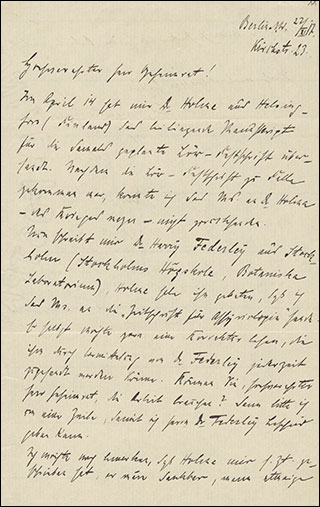 Berlin-N. 22/XI 17.
Kirchstr. 23.
Hochverehrter Herr Geheimrat!
Im April 14 hat mir Dr Holma aus Helsing-
fors (Finnland) das beiliegende Manuskript
für die damals geplante Festschrift über-
sandt. Nachdem die Festschrift zu Falle
gekommen war, konnte ich das Ms an Dr Holma
- des Krieges wegen - nicht zurücksenden.
Nun schreibt mir Dr Harry Federley aus Stock-
holm (Stockholms Högskola, Botaniska
Laboratorium), Holma habe ihn gebeten, daß ich
das Ms. an die "Zeitschrift für Assyriologie" sende.
Er selbst möchte gern eine Korrektur lesen, die
ihm durch Vermittelung von Dr. Federley jederzeit
zugesandt werden könne. Können Sie, hochverehrter
Herr Geheimrat, die Arbeit brauchen? Dann bitte ich
um eine Zeile, damit ich Herrn Dr. Federley Bescheid
geben kann.
Ich möchte noch bemerken, daß Holma mir s. Zt. ge-
schrieben hat, er wäre dankbar, wenn etwaige